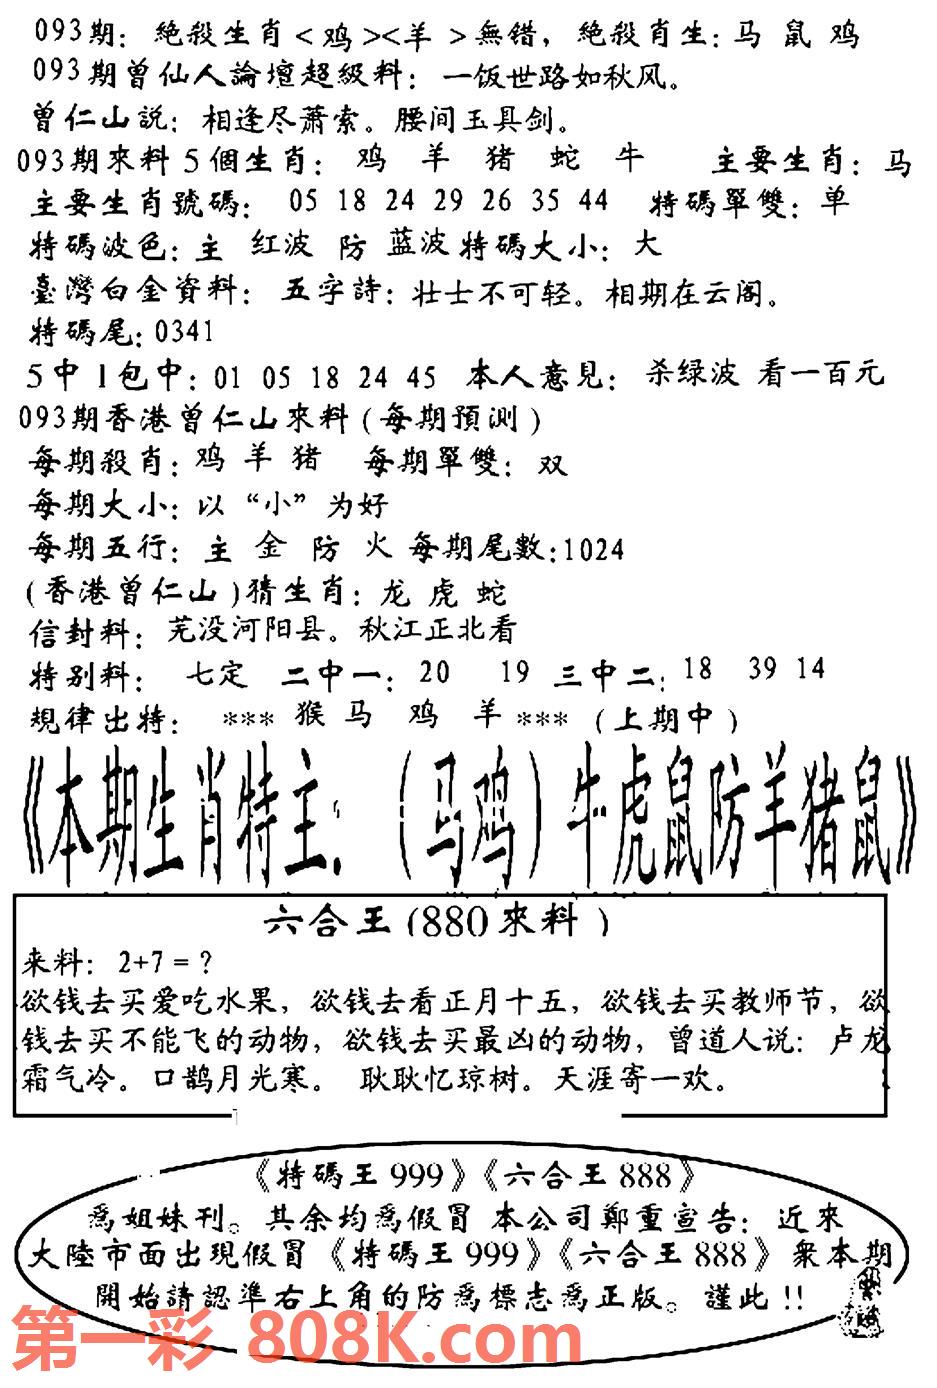 093期: 絶殺生肖<鸡><羊>無错, 絶殺肖生:马 鼠 鸡
093期曾仙人論壇超級料: 一饭世路如秋风。
曾仁山説: 相逢尽萧索。腰间玉具剑。
093期來料5個生肖: 鸡 羊 猪 蛇 牛 主要生肖:马
主要生肖號碼: 05 18 24 29 26 35 44 特碼單雙:单
特碼波色:主 红波 防 蓝波 特碼大小:大
臺灣白金資料: 五字詩:壮士不可轻。相期在云阁。
特碼尾:0341
5中1包中:01 05 18 24 45 本人意見: 杀绿波 看一百元
093期香港曾仁山來料(每期預测)
每期殺肖:鸡 羊 猪 每期單雙:双
每期大小:以“小”为好
每期五行:主 金 防 火 每期尾數:1024
(香港曾仁山)猜生肖:龙 虎 蛇
信封料:芜没河阳县。秋江正北看
特别料: 七定 二中一:20 19 三中二:18 39 14
規律出特: ***猴 马 鸡 羊***(上期中)
《本期生肖特主:(马鸡)牛虎鼠防羊猪鼠》
六合王(880來料)
来料: 2+7=?
欲钱去买爱吃水果, 欲钱去看正月十五, 欲钱去买教师节, 欲
钱去买不能飞的动物, 欲钱去买最凶的动物, 曾道人说: 卢龙
霜气冷。口鹊月光寒。 耿耿忆琼树。天涯寄一欢。
《特碼王999》《六合王888》
爲姐妹刊。其余均爲假冒 本公司鄭重宣告: 近來
大陸市面出現假冒《特碼王999》《六合王888》衆本期
開始請認準右上角的防爲標志爲正版。謹此!!
第一彩 808K.com